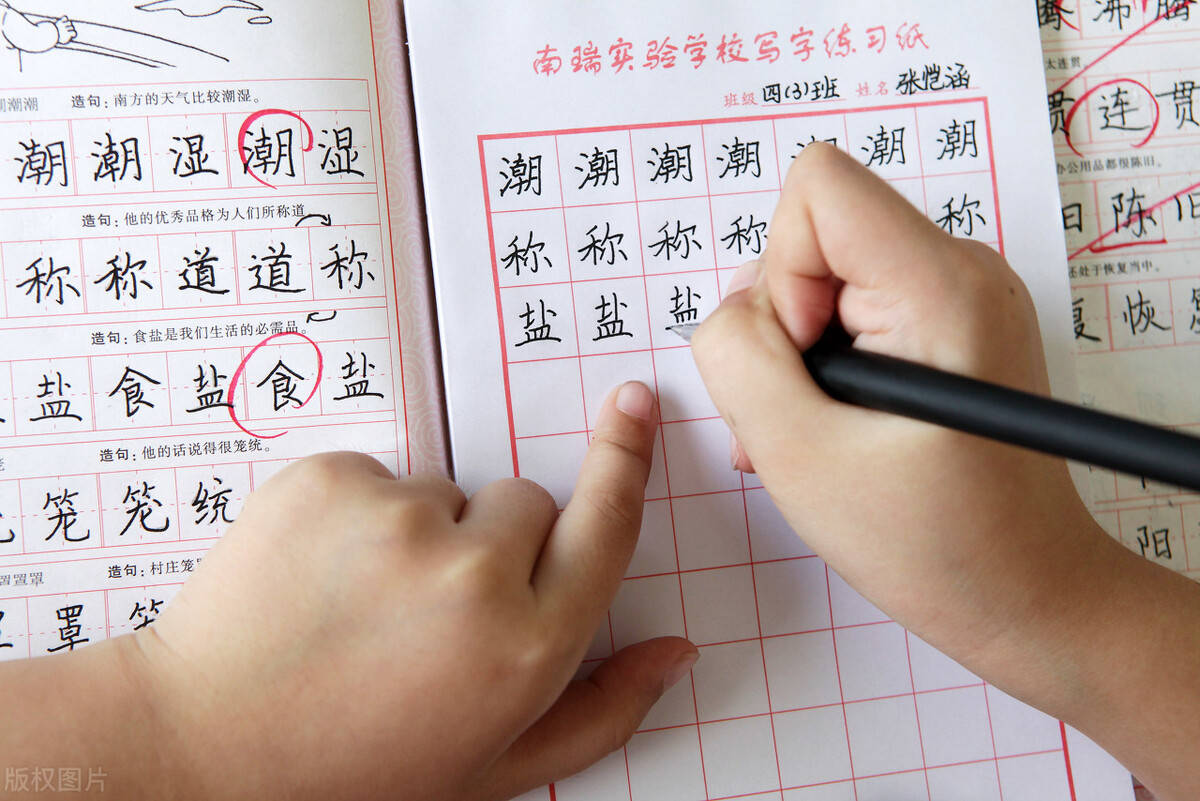 潮潮 造句:南方的天气比较潮湿。
潮潮湿潮湿
造句:他的优秀品格为人们所称道
称称道道称
造句:食盐是我们生活的必需品。
盐食盐食盐
造句:他的话说得很笼统。
笼笼统
罩罩 造句:村庄笼
罩
南瑞实验学校写字练习纸
班级 四(3)班 姓名 张恺涵
潮潮潮潮潮潮
称称称称称
盐盐盐
腾沸腾
太连贯
贯连贯
办公用品都很陈旧。
旧陈旧
还处于恢复当中。
复恢
阳
版权图片